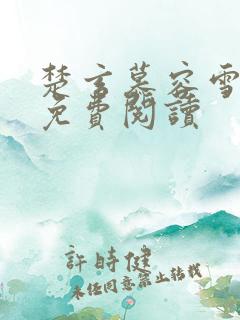 楚言慕容雪
免費閱讀
許時健
未經同意禁止轉載